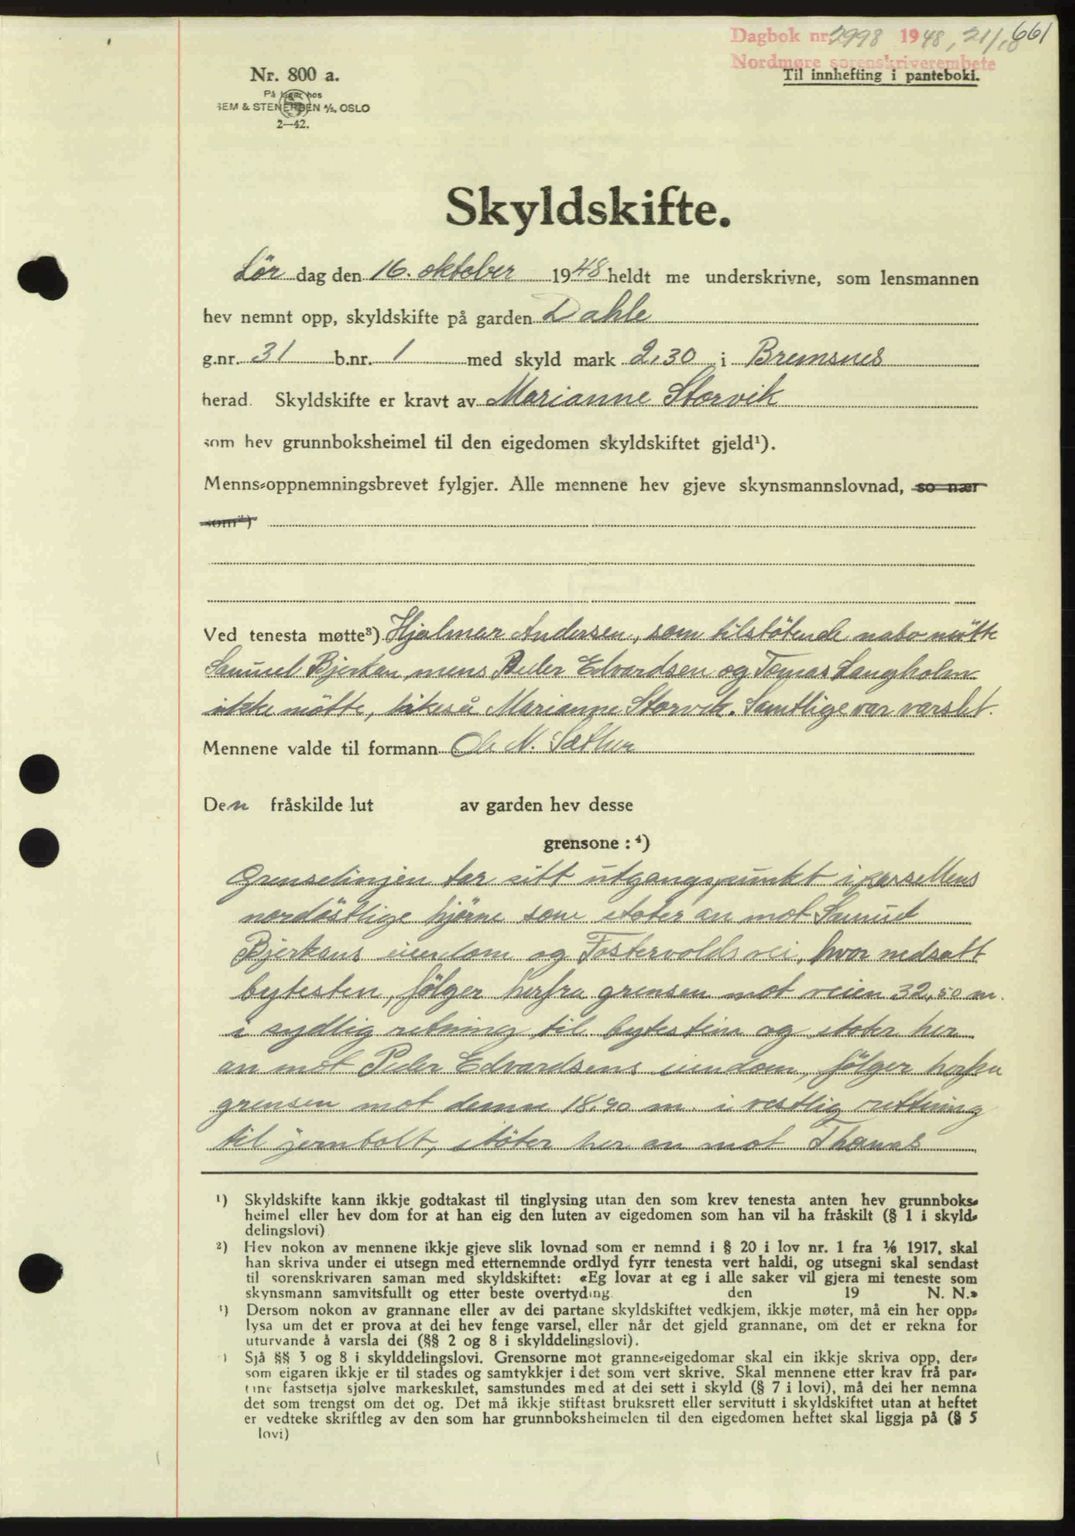 Dagbok nr. 2998 1948, 21/10 661
Nordmøre sorenskriverembete
Til innhefting i panteboki.
Nr. 800 a.
På lager hos
SEM & STENERSEN A/S, OSLO
2—42.
Skyldskifte.
Lör dag den 16. oktober 1948 heldt me underskrivne, som lensmannen
hev nemnt opp, skyldskifte på garden Dahle
g.nr. 31 b.nr. 1 med skyld mark 2,30 i Bremsnes
herad. Skyldskifte er kravt av Marianne Storvik
som hev grunnboksheimel til den eigedomen skyldskiftet gjeld¹).
Menns-oppnemningsbrevet fylgjer. Alle mennene hev gjeve skynsmannslovnad, so nær
som²)
Ved tenesta møtte³) Hjalmar Andersen, som tilstötende nabo mötte
Samuel Bjerkan, mens Peder Edvardsen og Tomas Langholm
ikke mötte, likeså Marianne Storvik. Samtlige var varslet.
Mennene valde til formann Ole N. Sæther
Den fråskilde lut av garden hev desse
grensone : ⁴)
Grenselinjen tar sitt utgangspunkt i parsellens
nordöstlige hjörne som støter an mot Samuel
Bjerkans eiendom og Fostervolds vei, hvor nedsatt
bytesten, fölger herfra grensen mot veien 32,50 m.
i sydlig retning til bytestein og støter her
an mot Peder Edvardsens eiendom, fölger herfra
grensen mot denne 18.90 m. i vestlig rettning
til jernbolt, støter her an mot Thomas
¹) Skyldskifte kann ikkje godtakast til tinglysing utan den som krev tenesta anten hev grunnboks-
heimel eller hev dom for at han eig den luten av eigedomen som han vil ha fråskilt (§ 1 i skyld-
delingslovi)
²) Hev nokon av mennene ikkje gjeve slik lovnad som er nemnd i § 20 i lov nr. 1 fra 1/6 1917, skal
han skriva under ei utsegn med etternemnde ordlyd fyrr tenesta vert haldi, og utsegni skal sendast
til sorenskrivaren saman med skyldskiftet: «Eg lovar at eg i alle saker vil gjera mi teneste som
skynsmann samvitsfullt og etter beste overtyding. den 19 N. N.»
³) Dersom nokon av grannane eller av dei partane skyldskiftet vedkjem, ikkje møter, må ein her opp-
lysa um det er prova at dei hev fenge varsel, eller når det gjeld grannane, om det er rekna for
uturvande å varsla dei (§§ 2 og 8 i skylddelingslovi).
) Sjå §§ 3 og 8 i skylddelingslovi. Grensorne mot granne-eigedomar skal ein ikkje skriva opp, der-
som eigaren ikkje er til stades og samtykkjer i det som vert skrive. Skal mennene etter krav frå par-
tane fastsetja sjølve markeskilet, samstundes med at dei sett i skyld (§ 7 i lovi), må dei her nemna
det som trengst om det og. Det må ikkje stiftast bruksrett eller servitutt i skyldskiftet utan at heftet
er vedteke skriftleg av den som har grunnboksheimelen til den eigedomen heftet skal liggja på (§ 5
lovi)